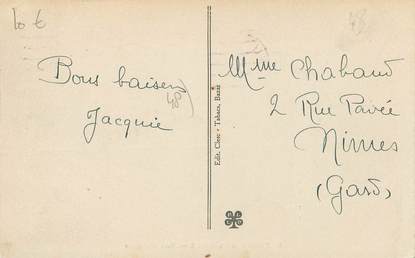 10 €
Bons baisers
Jacquie
48
Edit. Cisec - Tabacs, Buzet
Mme Chabaud
2 Rue Pavée
Nimes
(Gard)